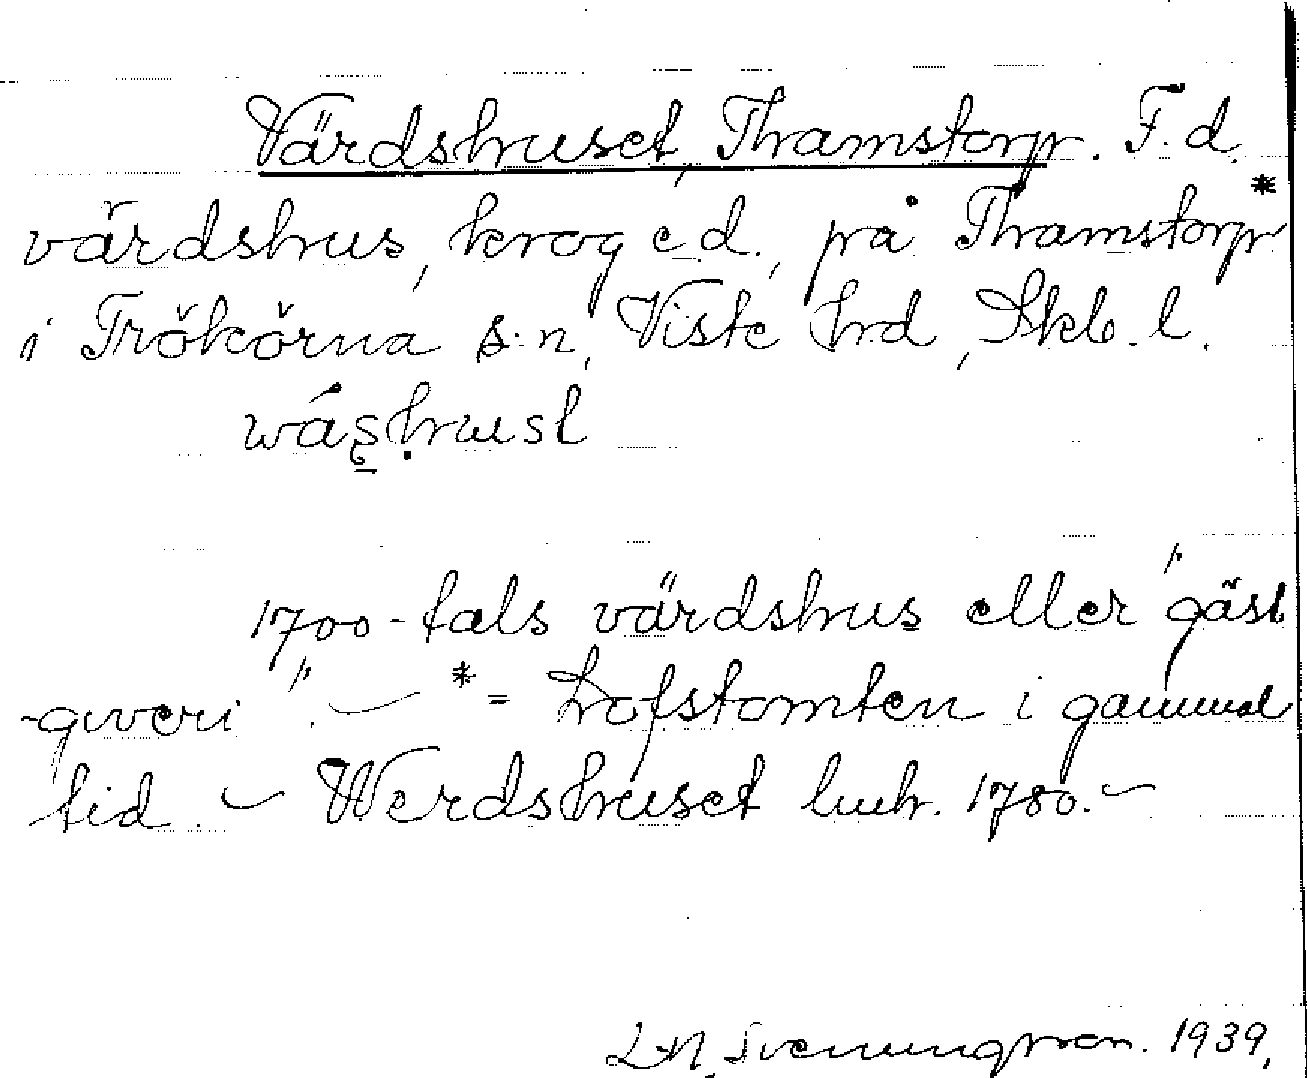 Värdshuset, Thamstorp. F.d.
värdshus, krog e.d., på Thamstorp*
i Trökörna s:n, Viste hrd, Skb. l.
1700-tals värdshus eller "gäst
-giveri". — * = Lofstomten i gammal
tid. — Werdshuset lmh. 1780. —
Svenungsson. 1939.